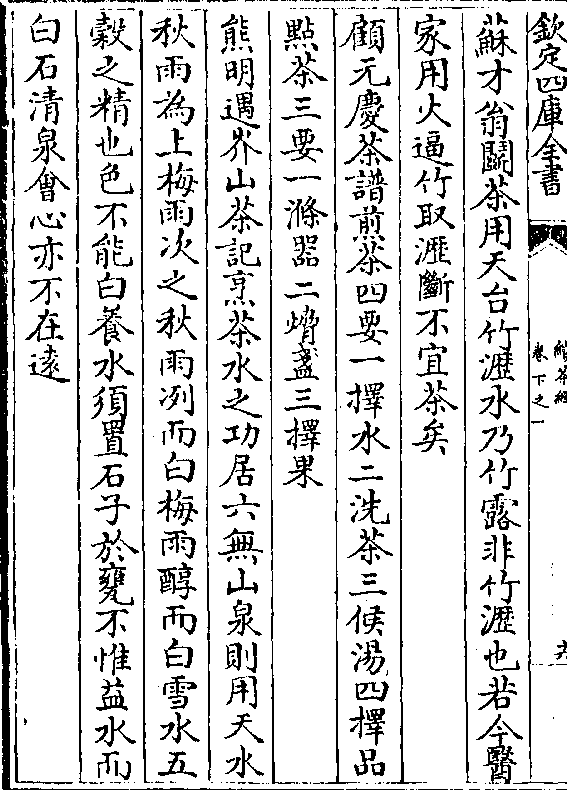 欽定四庫全書
續茶經
卷下之一
蘇才翁鬭茶用天台竹瀝水乃竹露非竹瀝也若今醫
家用火逼竹取瀝斷不宜茶矣
顧元慶茶譜煎茶四要一擇水二洗茶三候湯四擇品
點茶三要一滌器二熁盞三擇果
熊明遇岕山茶記烹茶水之功居六無山泉則用天水
秋雨為上梅雨次之秋雨冽而白梅雨醇而白雪水五
穀之精也色不能白養水須置石子於甕不惟益水而
白石清泉會心亦不在遠